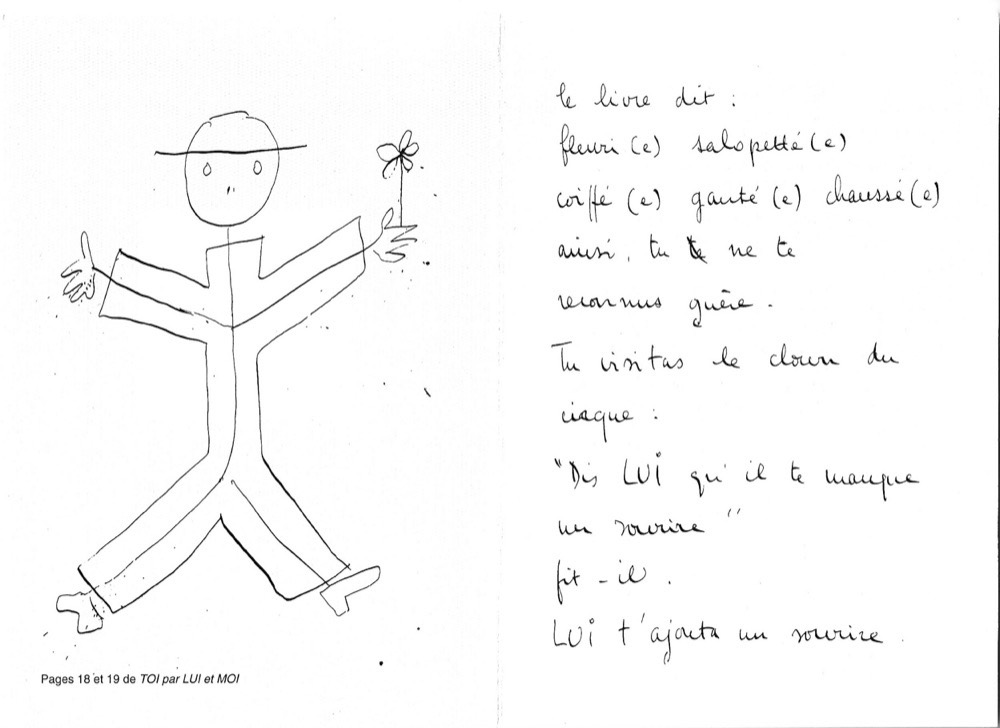 le livre dit :
fleuri (e) salopetté (e)
coiffé (e) ganté (e) chaussé (e)
ainsi, tu ne te
reconnus guère.
Tu visitas le clown du
cirque :
"Dis LUi qu'il te manque
un sourire"
fit-il.
LUi t'ajouta un sourire.
Pages 18 et 19 de TOI par LUI et MOI